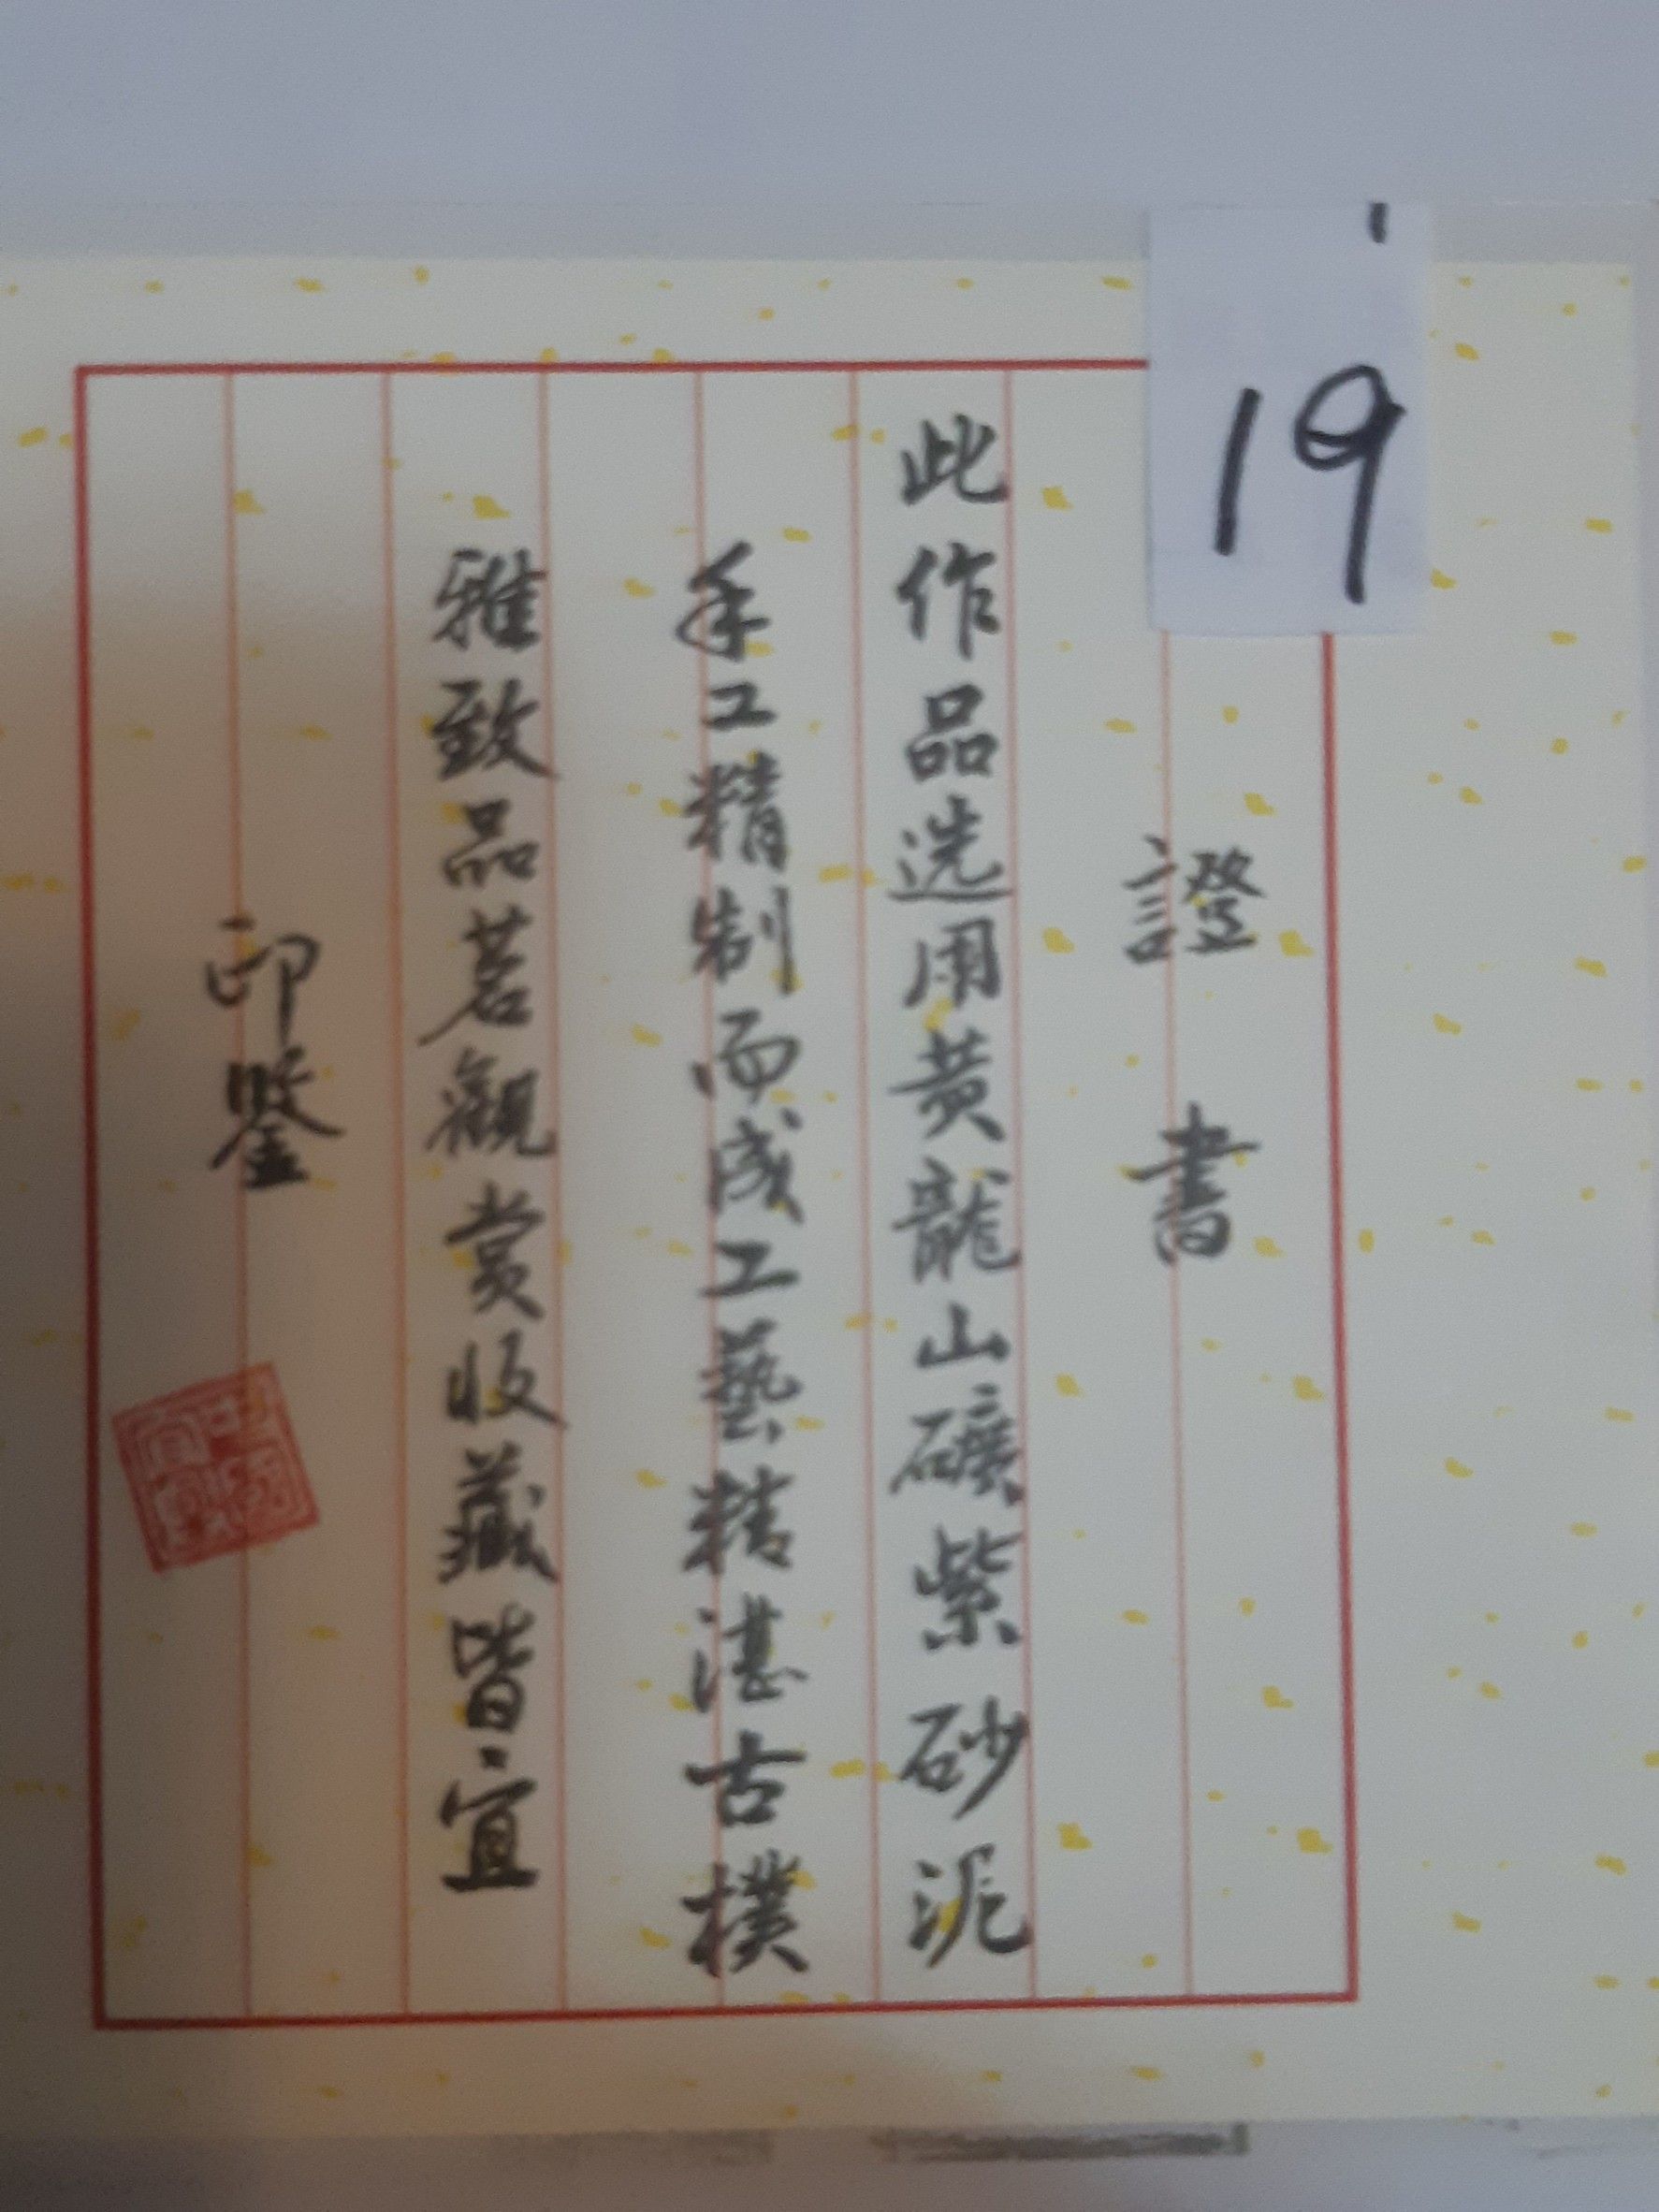 19
證書
此作品选用黄龍山礦紫砂泥
手工精制而成工藝精湛古樸
雅致品茗觀賞收藏皆宜
印鋻